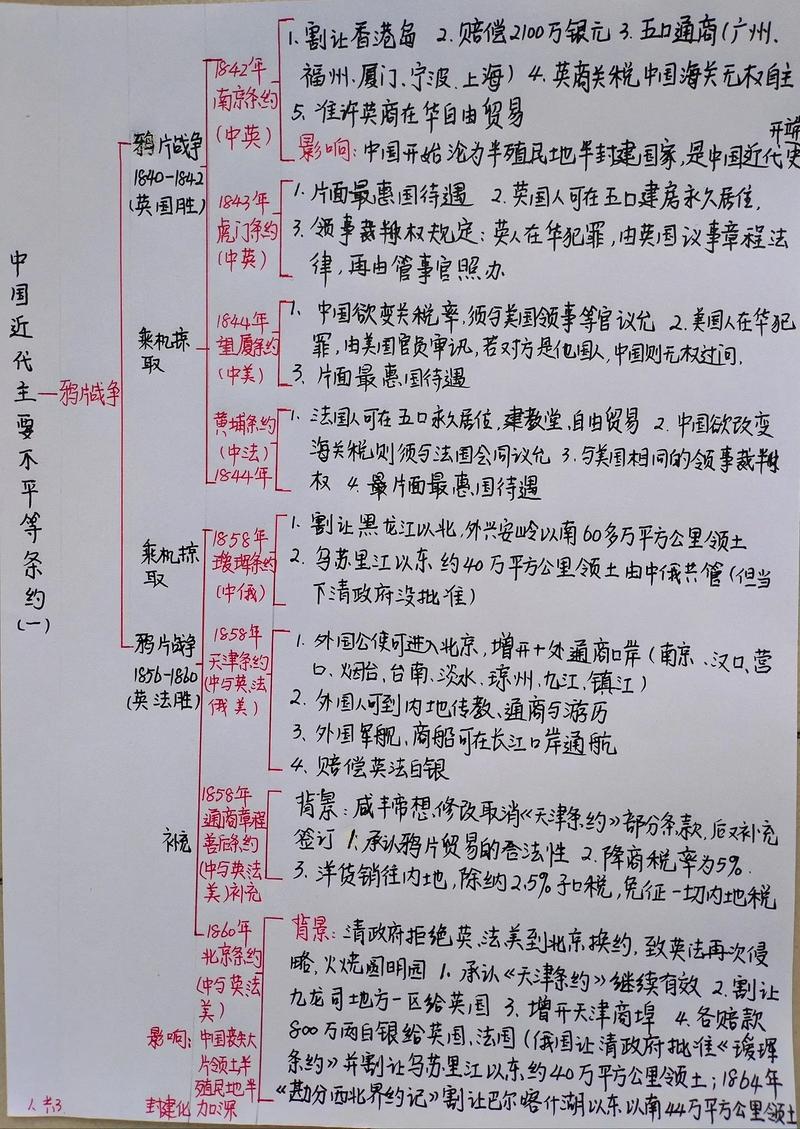 中国近代主要不平等条约(一)
鸦片战争
鸦片战争
1840-1842
(英国胜)
1842年
南京条约
(中英)
1. 割让香港岛 2. 赔偿2100万银元 3. 五口通商(广州、
福州、厦门、宁波、上海) 4. 英商关税中国海关无权自主
5. 准许英商在华自由贸易
影响: 中国开始沦为半殖民地半封建国家,是中国近代史
开端
1843年
虎门条约
(中英)
1. 片面最惠国待遇 2. 英国人可在五口建房永久居住,
3. 领事裁判权规定:英人在华犯罪,由英国议事章程法
律,再由管事官照办
乘机掠
取
1844年
望厦条约
(中美)
1. 中国欲变关税率,须与美国领事等官议允 2. 美国人在华犯
罪,由美国官员审讯,若对方是他国人,中国则无权过问.
3. 片面最惠国待遇
黄埔条约
(中法)
1844年
1. 法国人可在五口永久居住,建教堂、自由贸易 2. 中国欲改变
海关税则须与法国会同议允 3. 与美国相同的领事裁判
权 4. 最片面最惠国待遇
乘机掠
取
1858年
瑷珲条约
(中俄)
1. 割让黑龙江以北,外兴安岭以南60多万平方公里领土
2. 乌苏里江以东约40万平方公里领土由中俄共管(但当
下清政府没批准)
鸦片战争
1856-1860
(英法胜)
1858年
天津条约
(中与英、法
俄美)
1. 外国公使可进入北京,增开十处通商口岸(南京、汉口、营
口、烟台、台南、淡水、琼州、九江、镇江)
2. 外国人可到内地传教、通商与游历
3. 外国军舰、商船可在长江口岸通航
4. 赔偿英法白银
补充
1858年
通商章程
善后条约
(中与英法
美)补充
背景:咸丰帝想修改取消《天津条约》部分条款,后又补充
签订 1. 承认鸦片贸易的合法性 2. 降商税率为5%.
3. 洋货销往内地,除纳2.5%子口税,免征一切内地税
1860年
北京条约
(中与英法
美)
背景:清政府拒绝英、法美到北京换约,致英法再次侵
略,火烧圆明园 1. 承认《天津条约》继续有效 2. 割让
九龙司地方一区给英国 3. 增开天津商埠 4. 各赔款
800万两白银给英国、法国(俄国让清政府批准《瑷珲
条约》并割让乌苏里江以东约40万平方公里领土;1864年
《勘分西北界约记》割让巴尔喀什湖以东以南44万平方公里领土
影响:中国丧失大
片领土半
殖民地半
封建化加深